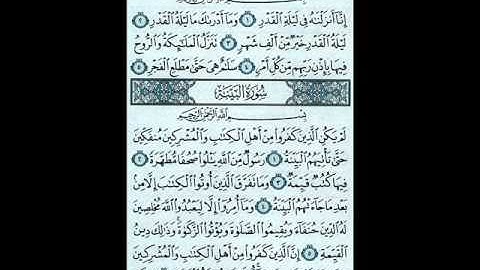 إِنَّا أَنزَلْنَٰهُ فِى لَيْلَةِ ٱلْقَدْرِ ١ وَمَآ أَدْرَىٰكَ مَا لَيْلَةُ ٱلْقَدْرِ ٢
لَيْلَةُ ٱلْقَدْرِ خَيْرٌ مِّنْ أَلْفِ شَهْرٍ ٣ تَنَزَّلُ ٱلْمَلَٰٓئِكَةُ وَٱلرُّوحُ
فِيهَا بِإِذْنِ رَبِّهِم مِّن كُلِّ أَمْرٍ ٤ سَلَٰمٌ هِىَ حَتَّىٰ مَطْلَعِ ٱلْفَجْرِ ٥
سُورَةُ البَيِّنَةِ
بِسْمِ ٱللَّهِ ٱلرَّحْمَٰنِ ٱلرَّحِيمِ
لَمْ يَكُنِ ٱلَّذِينَ كَفَرُوا۟ مِنْ أَهْلِ ٱلْكِتَٰبِ وَٱلْمُشْرِكِينَ مُنفَكِّينَ
حَتَّىٰ تَأْتِيَهُمُ ٱلْبَيِّنَةُ ١ رَسُولٌ مِّنَ ٱللَّهِ يَتْلُوا۟ صُحُفًا مُّطَهَّرَةً ٢
فِيهَا كُتُبٌ قَيِّمَةٌ ٣ وَمَا تَفَرَّقَ ٱلَّذِينَ أُوتُوا۟ ٱلْكِتَٰبَ إِلَّا مِنۢ
بَعْدِ مَا جَآءَتْهُمُ ٱلْبَيِّنَةُ ٤ وَمَآ أُمِرُوٓا۟ إِلَّا لِيَعْبُدُوا۟ ٱللَّهَ مُخْلِصِينَ
لَهُ ٱلدِّينَ حُنَفَآءَ وَيُقِيمُوا۟ ٱلصَّلَوٰةَ وَيُؤْتُوا۟ ٱلزَّكَوٰةَ وَذَٰلِكَ دِينُ
ٱلْقَيِّمَةِ ٥ إِنَّ ٱلَّذِينَ كَفَرُوا۟ مِنْ أَهْلِ ٱلْكِتَٰبِ وَٱلْمُشْرِكِينَ